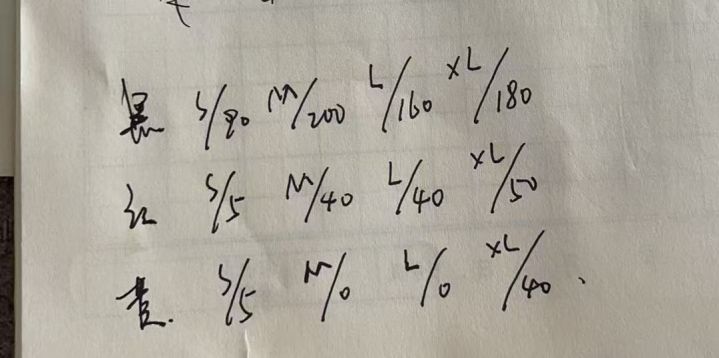 黑 S/80 M/200 L/160 XL/180
红 S/5 M/40 L/40 XL/50
黄 S/5 M/0 L/0 XL/40